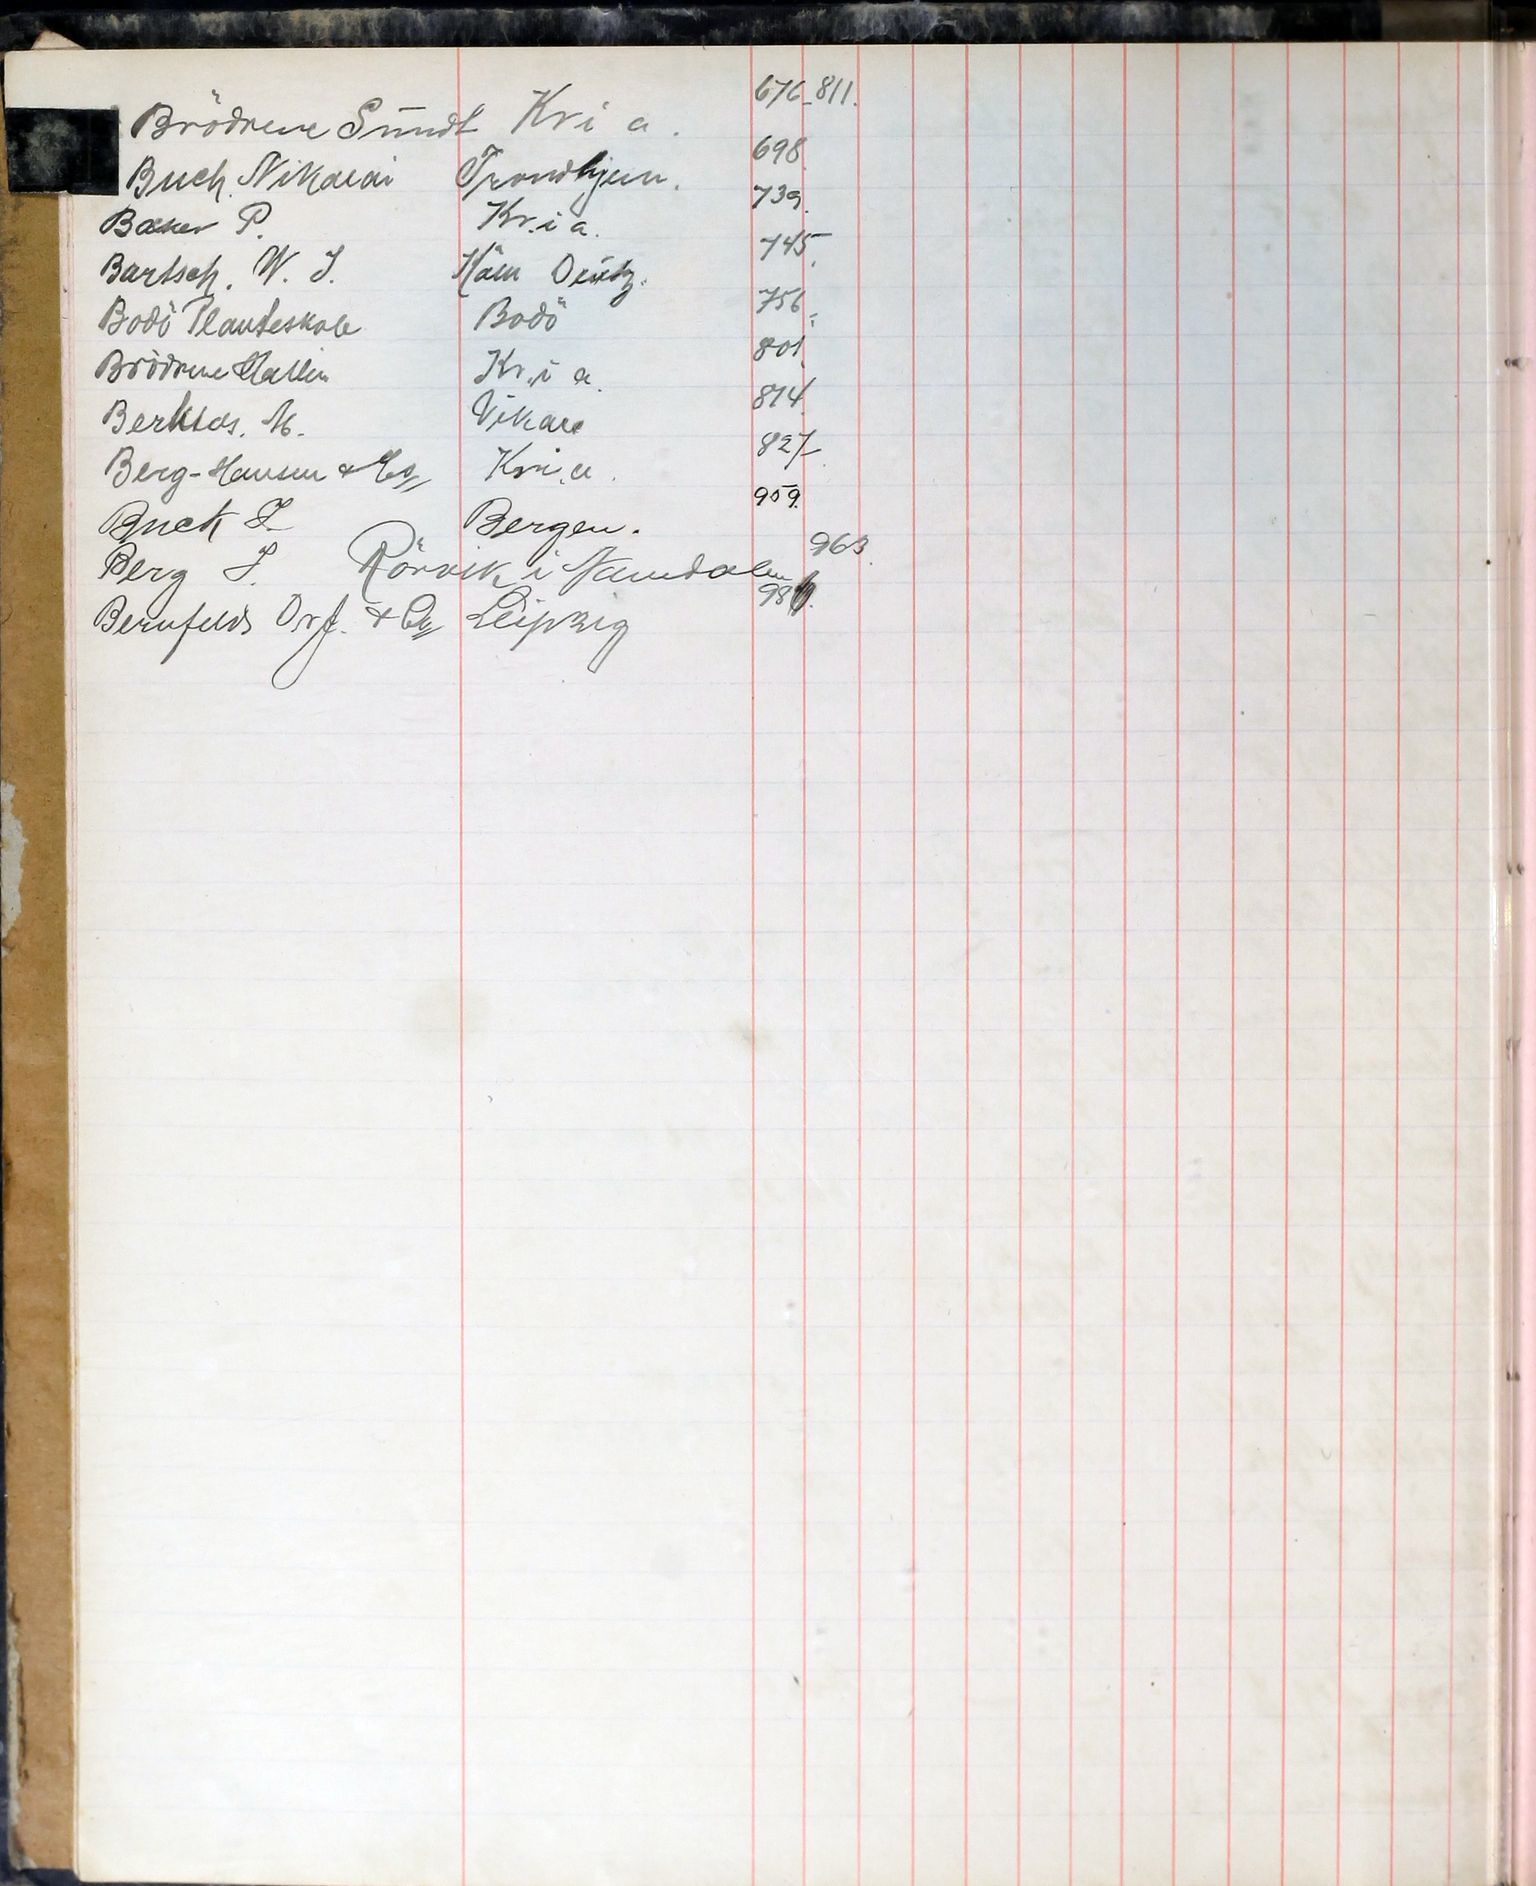 Brödrene Sundt Kria. 676-811.
Buch. Nikolai Trondhjem. 698
P. Kr.i a. 739.
Bartsch. W. J. Köln Deutz. 745.
Bodö Planteskole Bodö 756.
Brödrene Hallén Kr.i a. 801.
M. Vikane 814.
Berg-Hansen & Co, Kri.a. 827
Buck J. Bergen. 959.
Berg J. Rörvik i Namdalen 963.
Bernfelds & Co, Leipzig